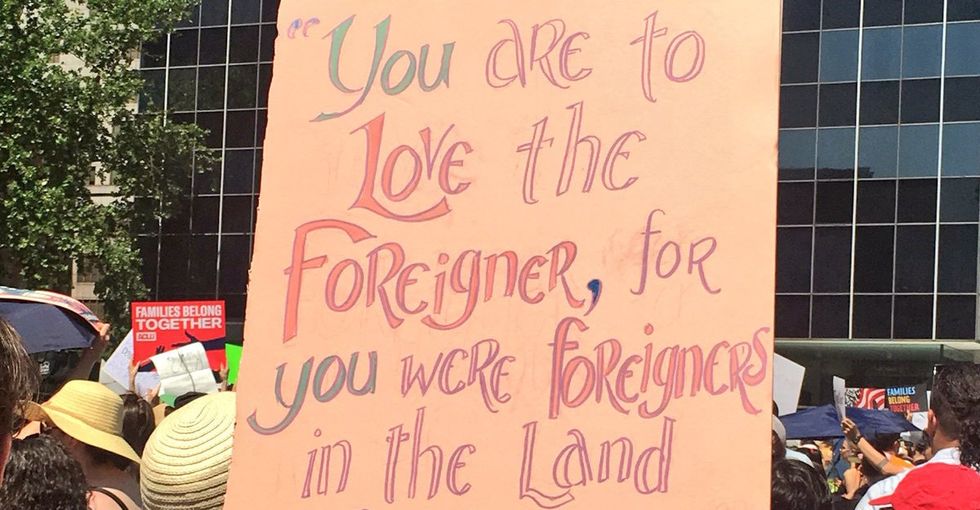 "You aRe to
Love the
FoReigneR, foR
you weRe foReigneRs
in the Land
FAMILIES BELONG
TOGETHER
ACLU
FAMILIES
BELONG
TOGETHER